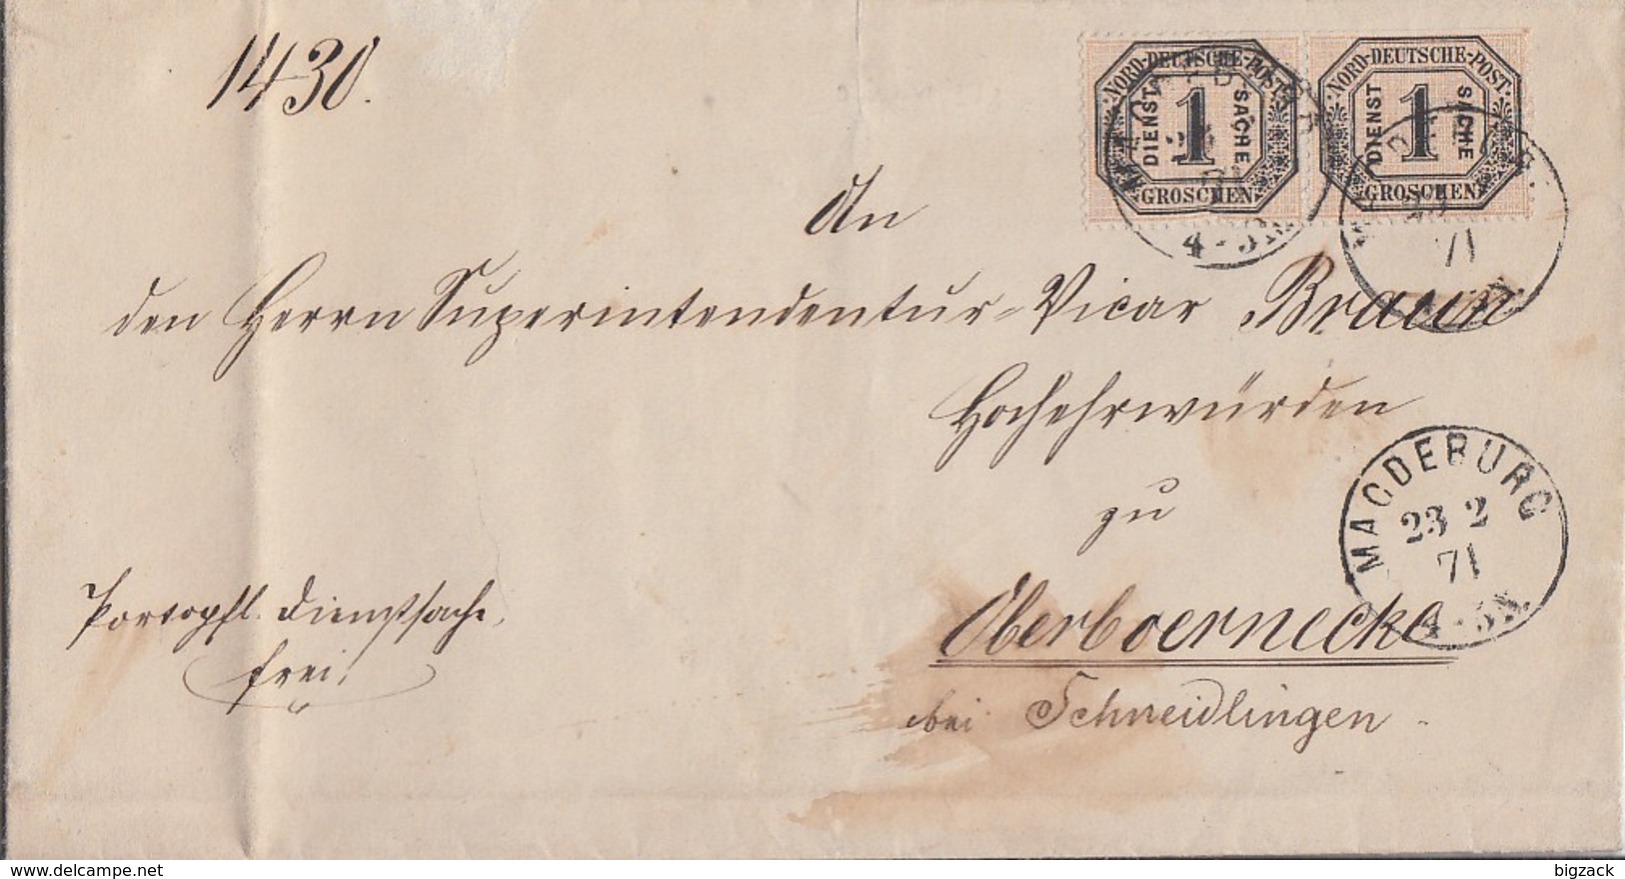 1430.
NORD-DEUTSCHE-POST
DIENST 1 SACHE
GROSCHEN
NORD-DEUTSCHE-POST
DIENST 1 SACHE
GROSCHEN
MAGDEBURG
4-5N
71
An
den Herrn Superintendentur-Vicar Braun
Hochehrwürden
zu
MAGDEBURG
23 2
71
4-5N.
Oberboernecke
bei Schneidlingen
Portopfl. Dienstsache,
frei!
bigzack